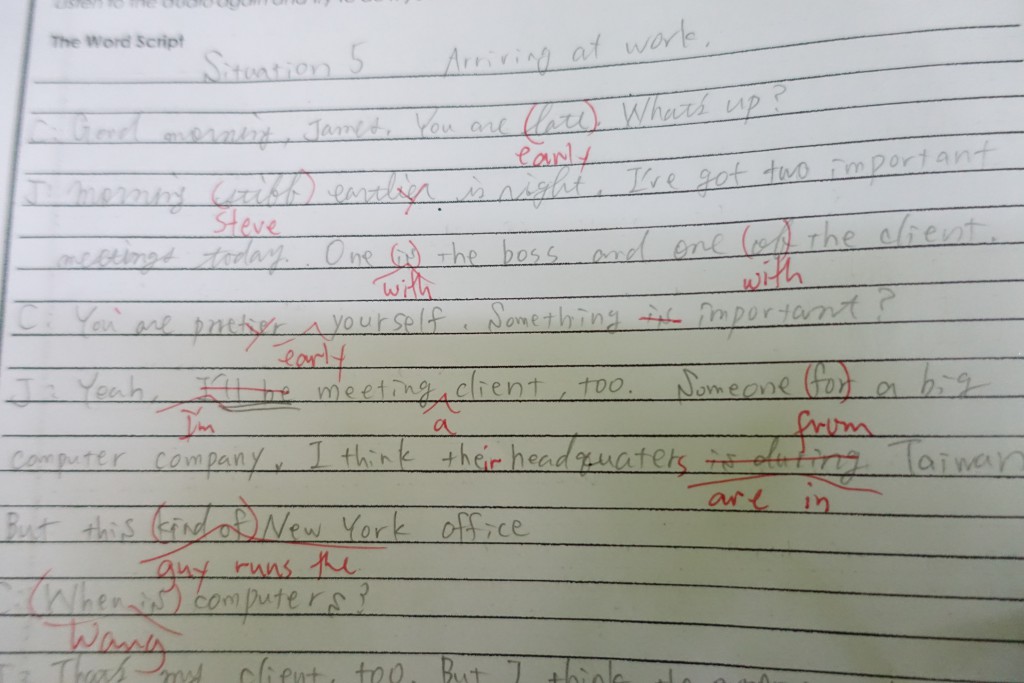 Listen to the audio again and try to
The Word Script
Situation 5 Arriving at work.
C: Good morning, James. You are (late). What's up?
early
J: morning earlier is right. I've got two important
Steve
meetings today. One (is) the boss and one (of) the client.
with with
C: You are pretty yourself. Something is important?
early
J: Yeah, I'll be meeting client, too. Someone (for) a big
I'm a from
computer company, I think their headquaters is during Taiwan
are in
But this (kind of) New York office
guy runs the
C: (When is) computers?
Wang
J: That's my client, too. But I think